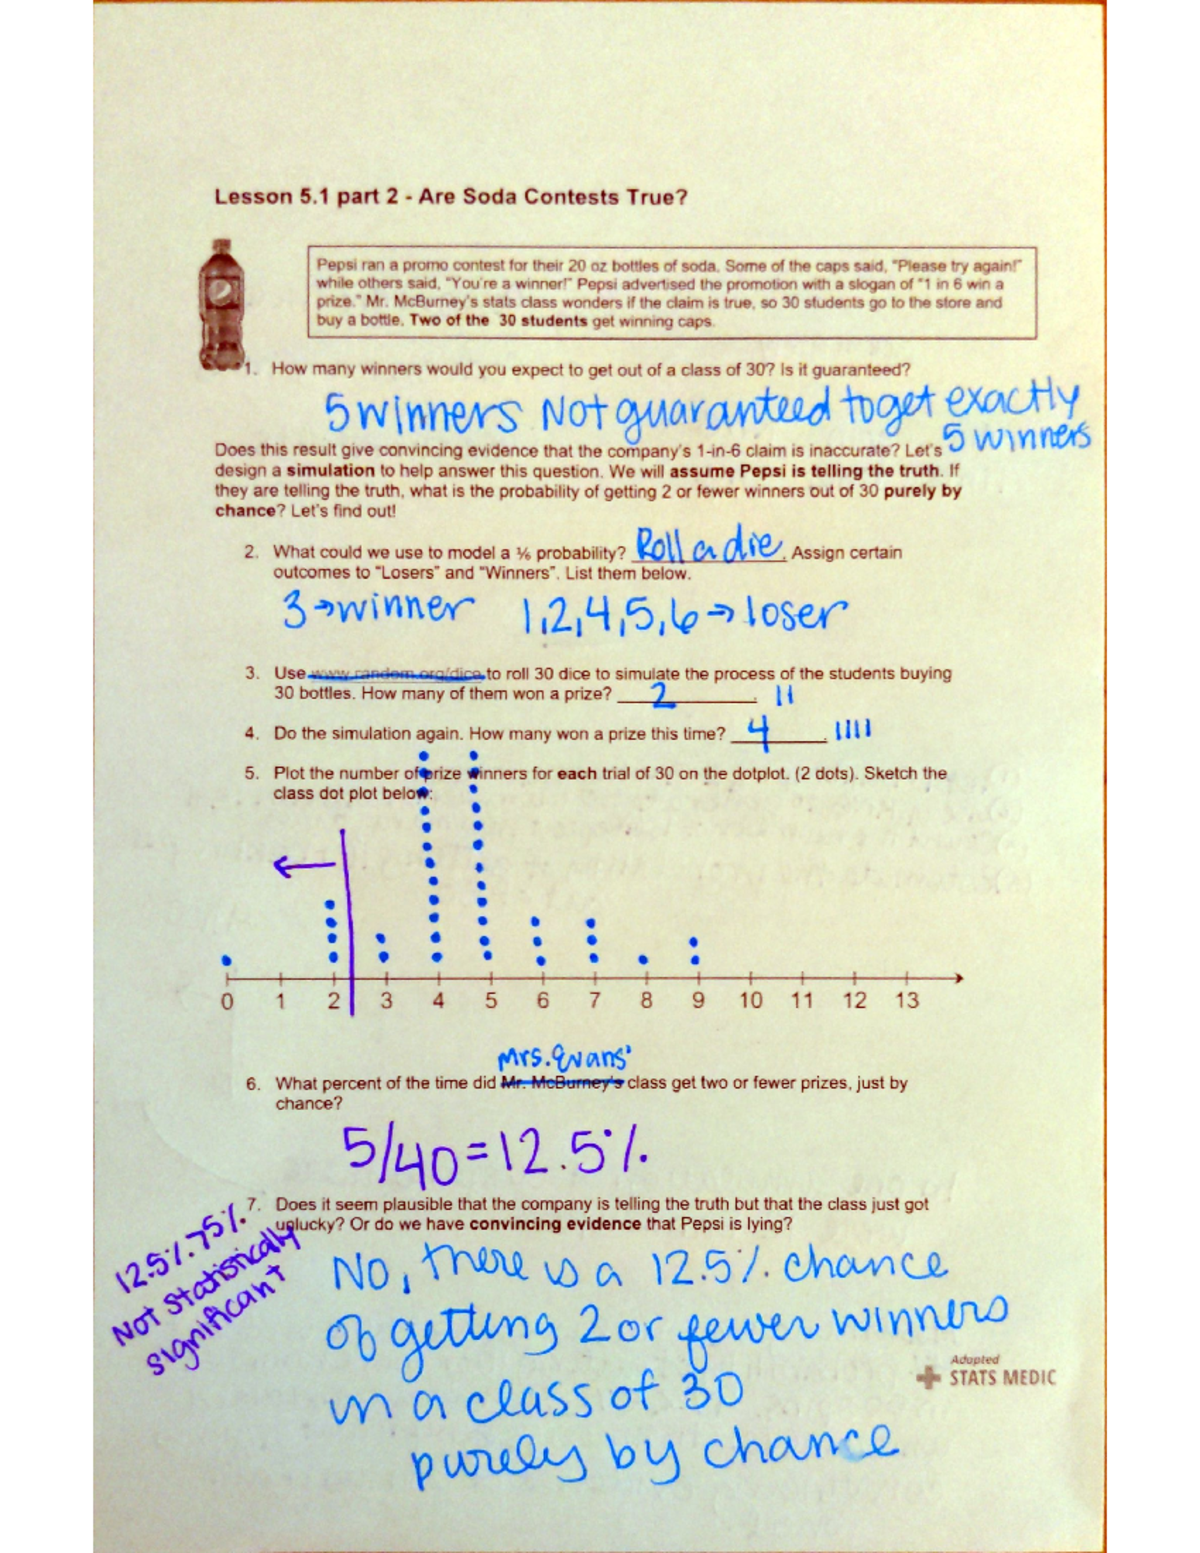 Lesson 5.1 part 2 - Are Soda Contests True?
Pepsi ran a promo contest for their 20 oz bottles of soda. Some of the caps said, "Please try again!"
while others said, "You're a winner!" Pepsi advertised the promotion with a slogan of "1 in 6 win a
prize." Mr. McBurney's stats class wonders if the claim is true, so 30 students go to the store and
buy a bottle. Two of the 30 students get winning caps.
1. How many winners would you expect to get out of a class of 30? Is it guaranteed?
5 winners Not guaranteed to get exactly
5 winners
Does this result give convincing evidence that the company's 1-in-6 claim is inaccurate? Let's
design a simulation to help answer this question. We will assume Pepsi is telling the truth. If
they are telling the truth, what is the probability of getting 2 or fewer winners out of 30 purely by
chance? Let's find out!
2. What could we use to model a ⅙ probability? Roll a die. Assign certain
outcomes to "Losers" and "Winners". List them below.
3→winner 1,2,4,5,6→loser
3. Use www.random.org/dice to roll 30 dice to simulate the process of the students buying
30 bottles. How many of them won a prize? 2. II
4. Do the simulation again. How many won a prize this time? 4. IIII
5. Plot the number of prize winners for each trial of 30 on the dotplot. (2 dots). Sketch the
class dot plot below:
0 1 2 3 4 5 6 7 8 9 10 11 12 13
Mrs. Evans'
6. What percent of the time did Mr. McBurney's class get two or fewer prizes, just by
chance?
5/40=12.5%
7. Does it seem plausible that the company is telling the truth but that the class just got
unlucky? Or do we have convincing evidence that Pepsi is lying?
12.5%.75%
Not statistically
significant
No, there is a 12.5% chance
of getting 2 or fewer winners
in a class of 30
purely by chance
Adapted
STATS MEDIC